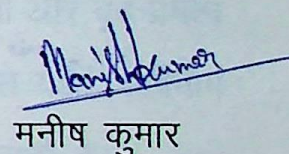 Manish Kumar
मनीष कुमार